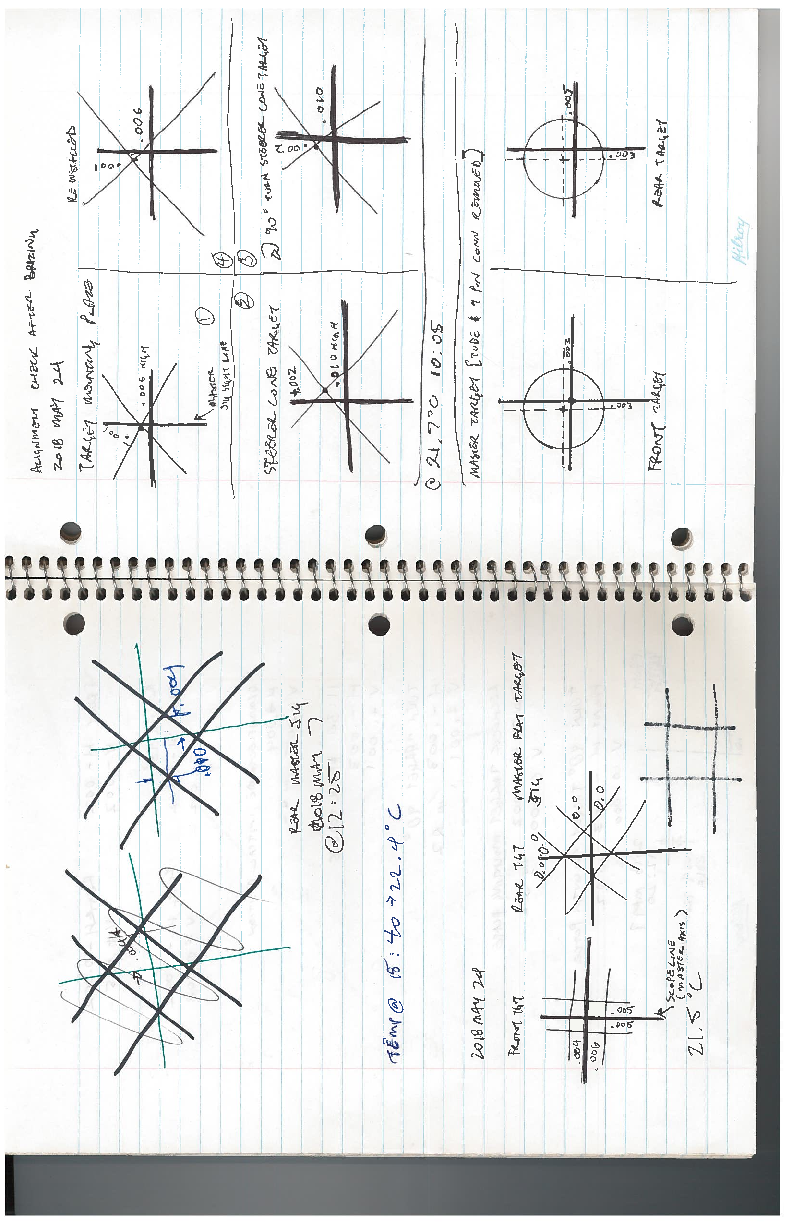 REAR MASTER JIG
2018 MAY 7
@ 12:25
.004
.040
TEMP @ 15:40 → 22.4°C
2018 MAY 24
FRONT TGT
.004
.006
.005
.005
SCOPE LINE
(MASTER AXIS)
21.5°C
REAR TGT
MASTER FLAT TARGET
JIG
0.0
0.0
ALIGNMENT CHECK AFTER BRAZING
2018 MAY 24
TARGET MOUNTING PLATE
①
.006 HIGH
MASTER
JIG SIGHT LINE
④
REINSTALLED
.006
②
STEERER CONE TARGET
.002
.010 HIGH
③
90° TURN STEERER CONE TARGET
.010
@ 21.7°C 10:05
MASTER TARGET [TUBE & 9 PIN CONN REMOVED]
.003
.003
FRONT TARGET
.005
.003
REAR TARGET
Hilroy